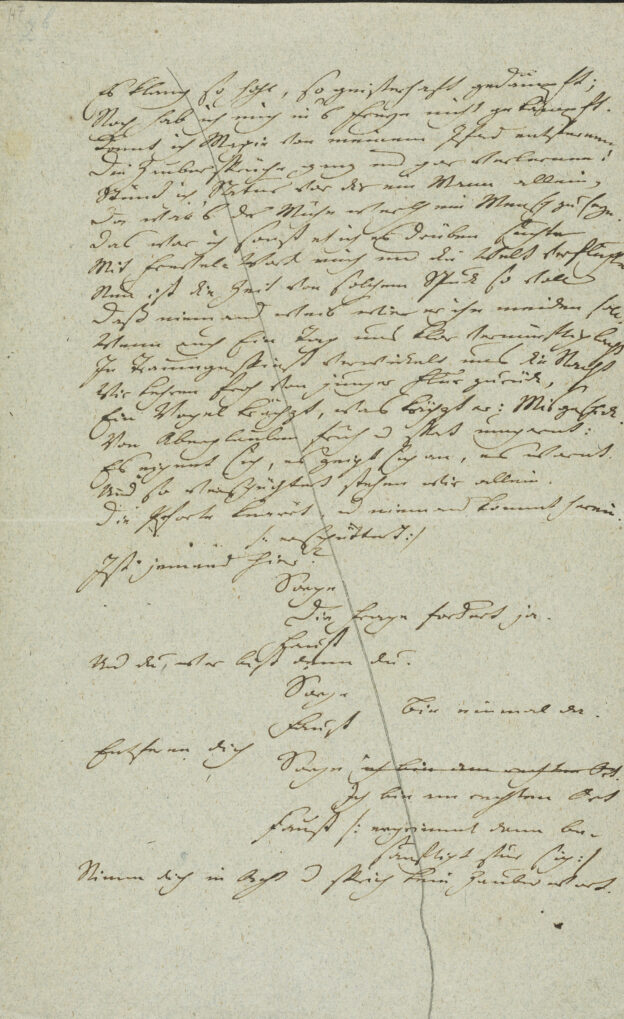 47 6
Es klang so hohl, so geisterhaft gedämpft;
Noch hab ich mich in's Freye nicht gekämpft.
Könnt ich Magie von meinem Pfad entfernen
Die Zaubersprüche ganz und gar verlernen!
Stünd ich Natur vor dir ein Mann allein,
Da wär's der Mühe werth ein Mensch zu seyn.
Das war ich sonst eh ich es drüben suchte
Mit Frevels Wort mich und die Welt verfluchte
Nun ist die Zeit von solchem Spuk so voll
Daß niemand weis wie er ihn meiden soll
Wenn auch Ein Tag uns klar vernünftig lacht
In Traumgespinst verwickelt uns die Nacht
Wir kehren froh von junger Flur zurück,
Ein Vogel krächzt, was krächzt er: Misgeschick.
Von Aberglauben früh u spat umgarnt:
Es eignet sich, es zeigt sich an, es warnt.
Und so verschüchtert stehen wir allein.
Die Pforte knarrt, und niemand kommt herein.
/: erschüttert :/
Ist jemand hier?
Sorge
Die Frage fordert ja.
Faust
Und du, wer bist denn du.
Sorge
Bin einmal da.
Faust
Entferne dich
Sorge ich bin am rechten Ort.
Ich bin am rechten Ort
Faust /: ergrimmt dann be-
sänftigt für sich :/
Nimm dich in Acht u sprich kein Zauberwort.